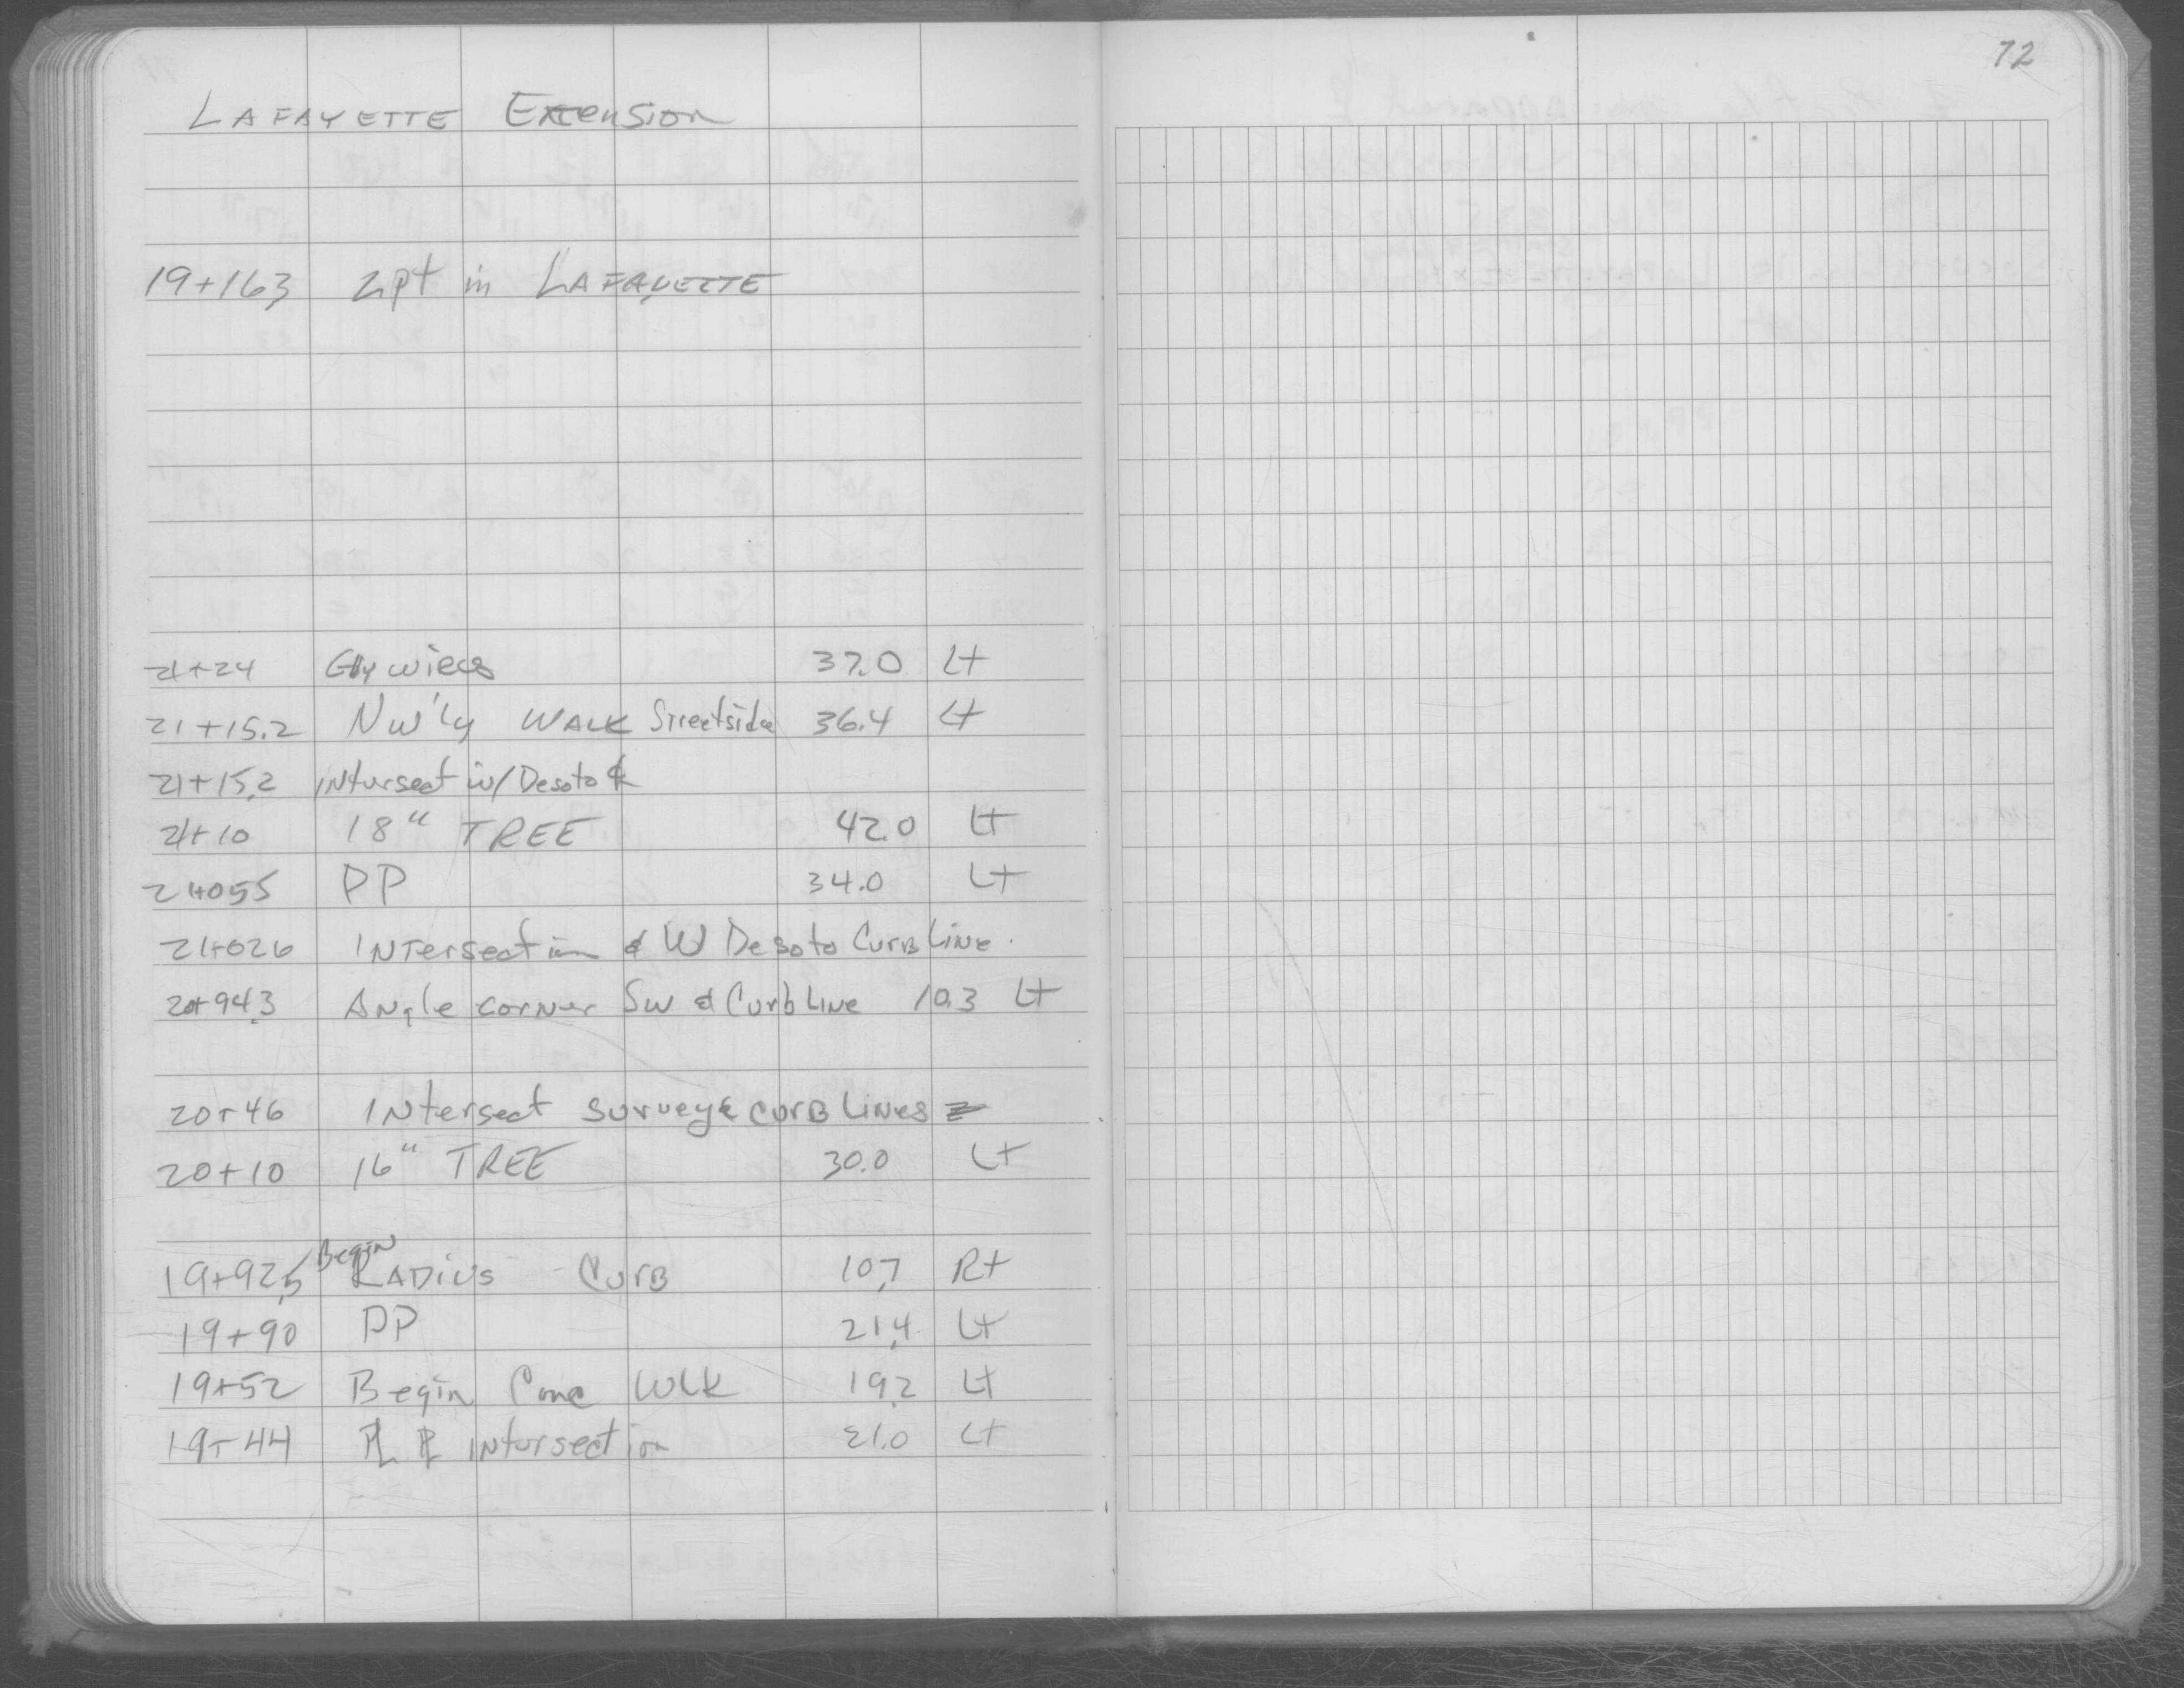 72
LAFAYETTE Extension
19+16.3 pt in LAFAYETTE
21+24 Guy wires 37.0 Lt
21+15.2 NW'ly WALK Streetside 36.4 Lt
21+15.2 Intersect w/ Desoto ℄
21+10 18" TREE 42.0 Lt
21+05.5 PP 34.0 Lt
21+02.6 Intersection & W Desoto Curb Line.
20+94.3 Angle corner SW & Curb Line 10.3 Lt
20+46 Intersect Survey & Curb Lines
20+10 16" TREE 30.0 Lt
19+92.5 Begin RADIUS Curb 10.7 Rt
19+90 PP 21.4 Lt
19+52 Begin Conc Wlk 19.2 Lt
19+44 PL PL intersection 21.0 Lt